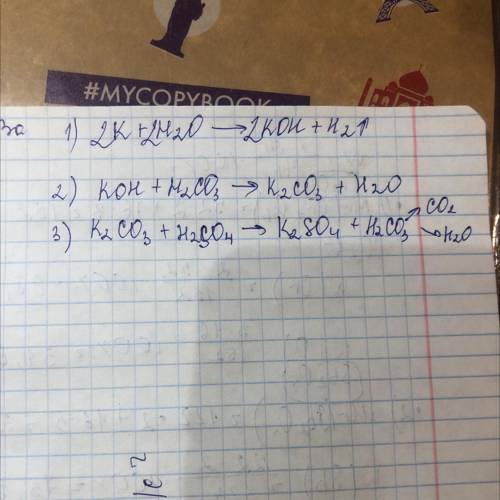 #MYCOPYBOOK
1) 2K + 2H2O → 2KOH + H2↑
2) KOH + H2CO3 → K2CO3 + H2O
3) K2CO3 + H2SO4 → K2SO4 + H2CO3 ↗ CO2
↘ H2O